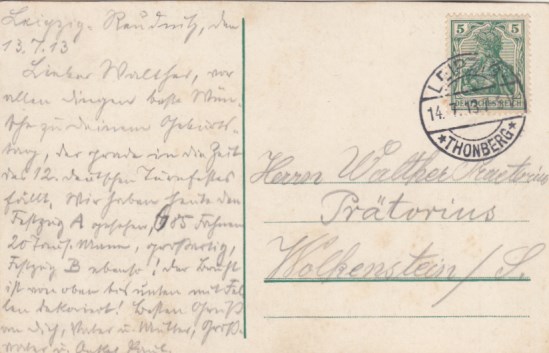 Leipzig-Reudnitz, den
13.7.13
Lieber Walther, vor
allen dingen beste Wün-
sche zu deinem Geburts-
tag, der grade in die Zeit
des 12. deutschen Turnfestes
fällt. Wir haben heute den
Festzug A gesehen, 85 Fahnen
20 taus. Mann, großartig,
Festzug B ebenso! der
ist von oben bis unten mit
dekoriert! Besten Gruß
an dich, Vater u. Mutter, Groß-
vater u. Onkel Paul.
5 5
DEUTSCHES REICH
LEIPZIG
14.7.13
*THONBERG*
Herrn Walther Praetorius
Prätorius
Wolkenstein/S.